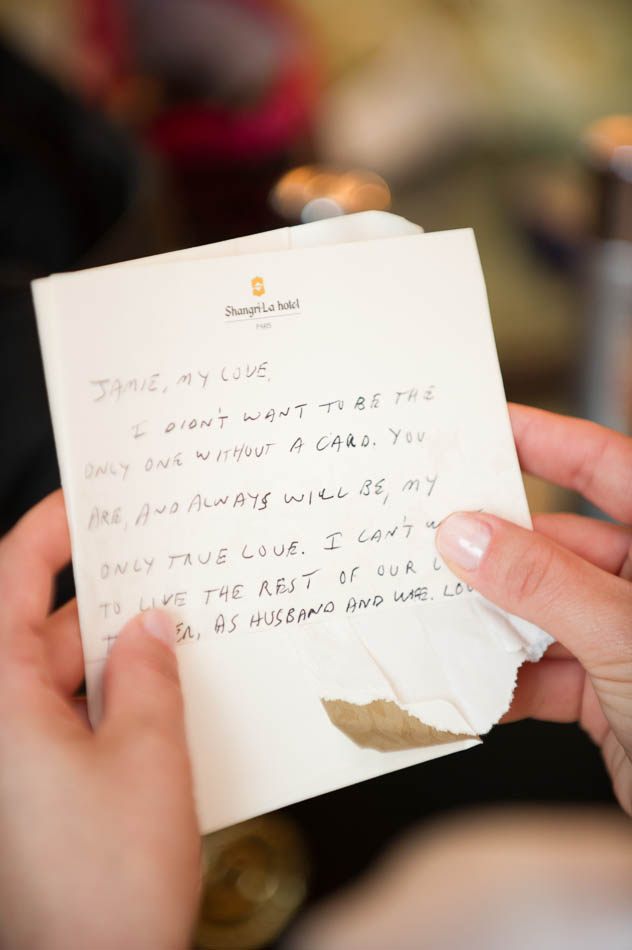 Shangri-La hotel
PARIS
JAMIE, MY LOVE,
I DIDN'T WANT TO BE THE
ONLY ONE WITHOUT A CARD. YOU
ARE, AND ALWAYS WILL BE, MY
ONLY TRUE LOVE. I CAN'T
TO LIVE THE REST OF OUR
AS HUSBAND AND WIFE.